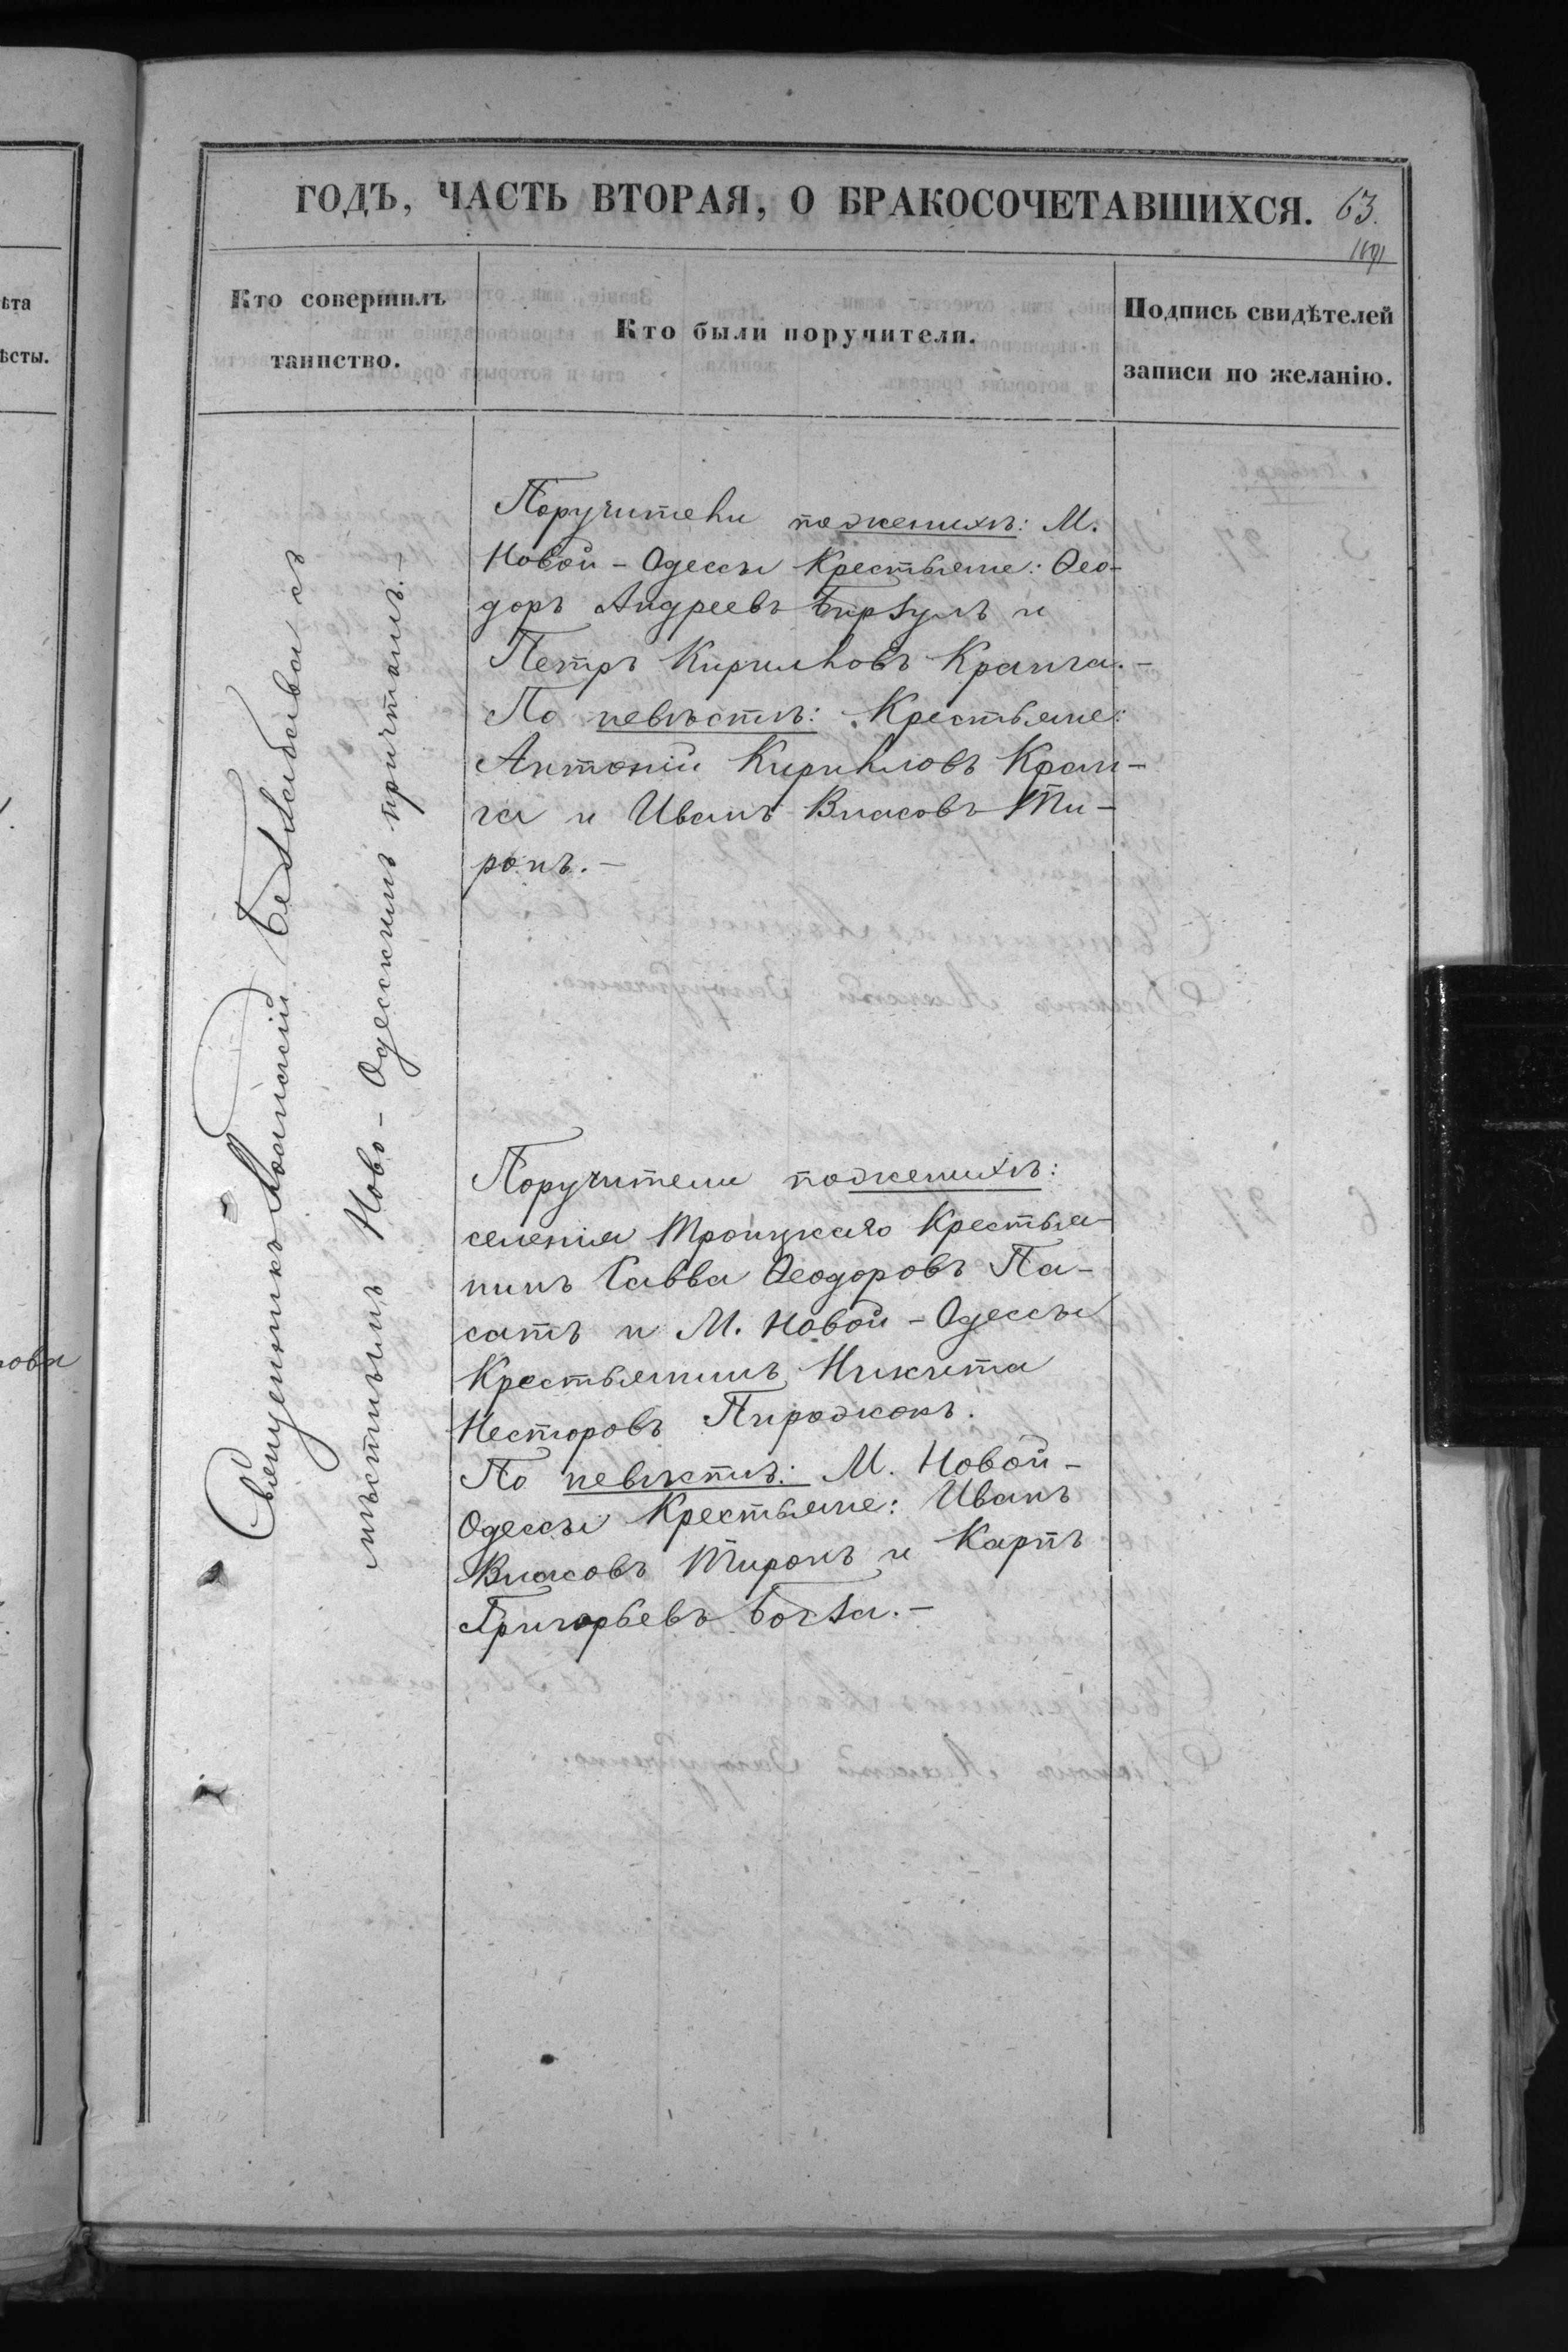 ГОДЪ, ЧАСТЬ ВТОРАЯ, О БРАКОСОЧЕТАВШИХСЯ. 63.
Кто совершилъ
таинство.
Кто были поручители.
Подпись свидѣтелей
записи по желанію.
Священникъ Іоанникій
мѣстнымъ Ново-Одесскимъ причтомъ.-
Поручители по женихѣ: М.
Новой-Одессы Крестьяне: Ѳео-
доръ Андреевъ Бирзулъ и
Петръ Кириловъ Кранга.-
По невѣстѣ: Крестьяне:
Антоній Кириловъ Кран-
га и Иванъ Власовъ Ти-
ронъ.-
Поручители по женихѣ:
селенія Троицкаго Крестья-
нинъ Савва Ѳеодоровъ Па-
сатъ и М. Новой-Одессы
Крестьянинъ Никита
Несторовъ Пирожокъ.
По невѣстѣ: М. Новой-
Одессы Крестьяне: Иванъ
Власовъ Тиронъ и Карпъ
Григорьевъ Богза.-
ѣта
ѣсты.